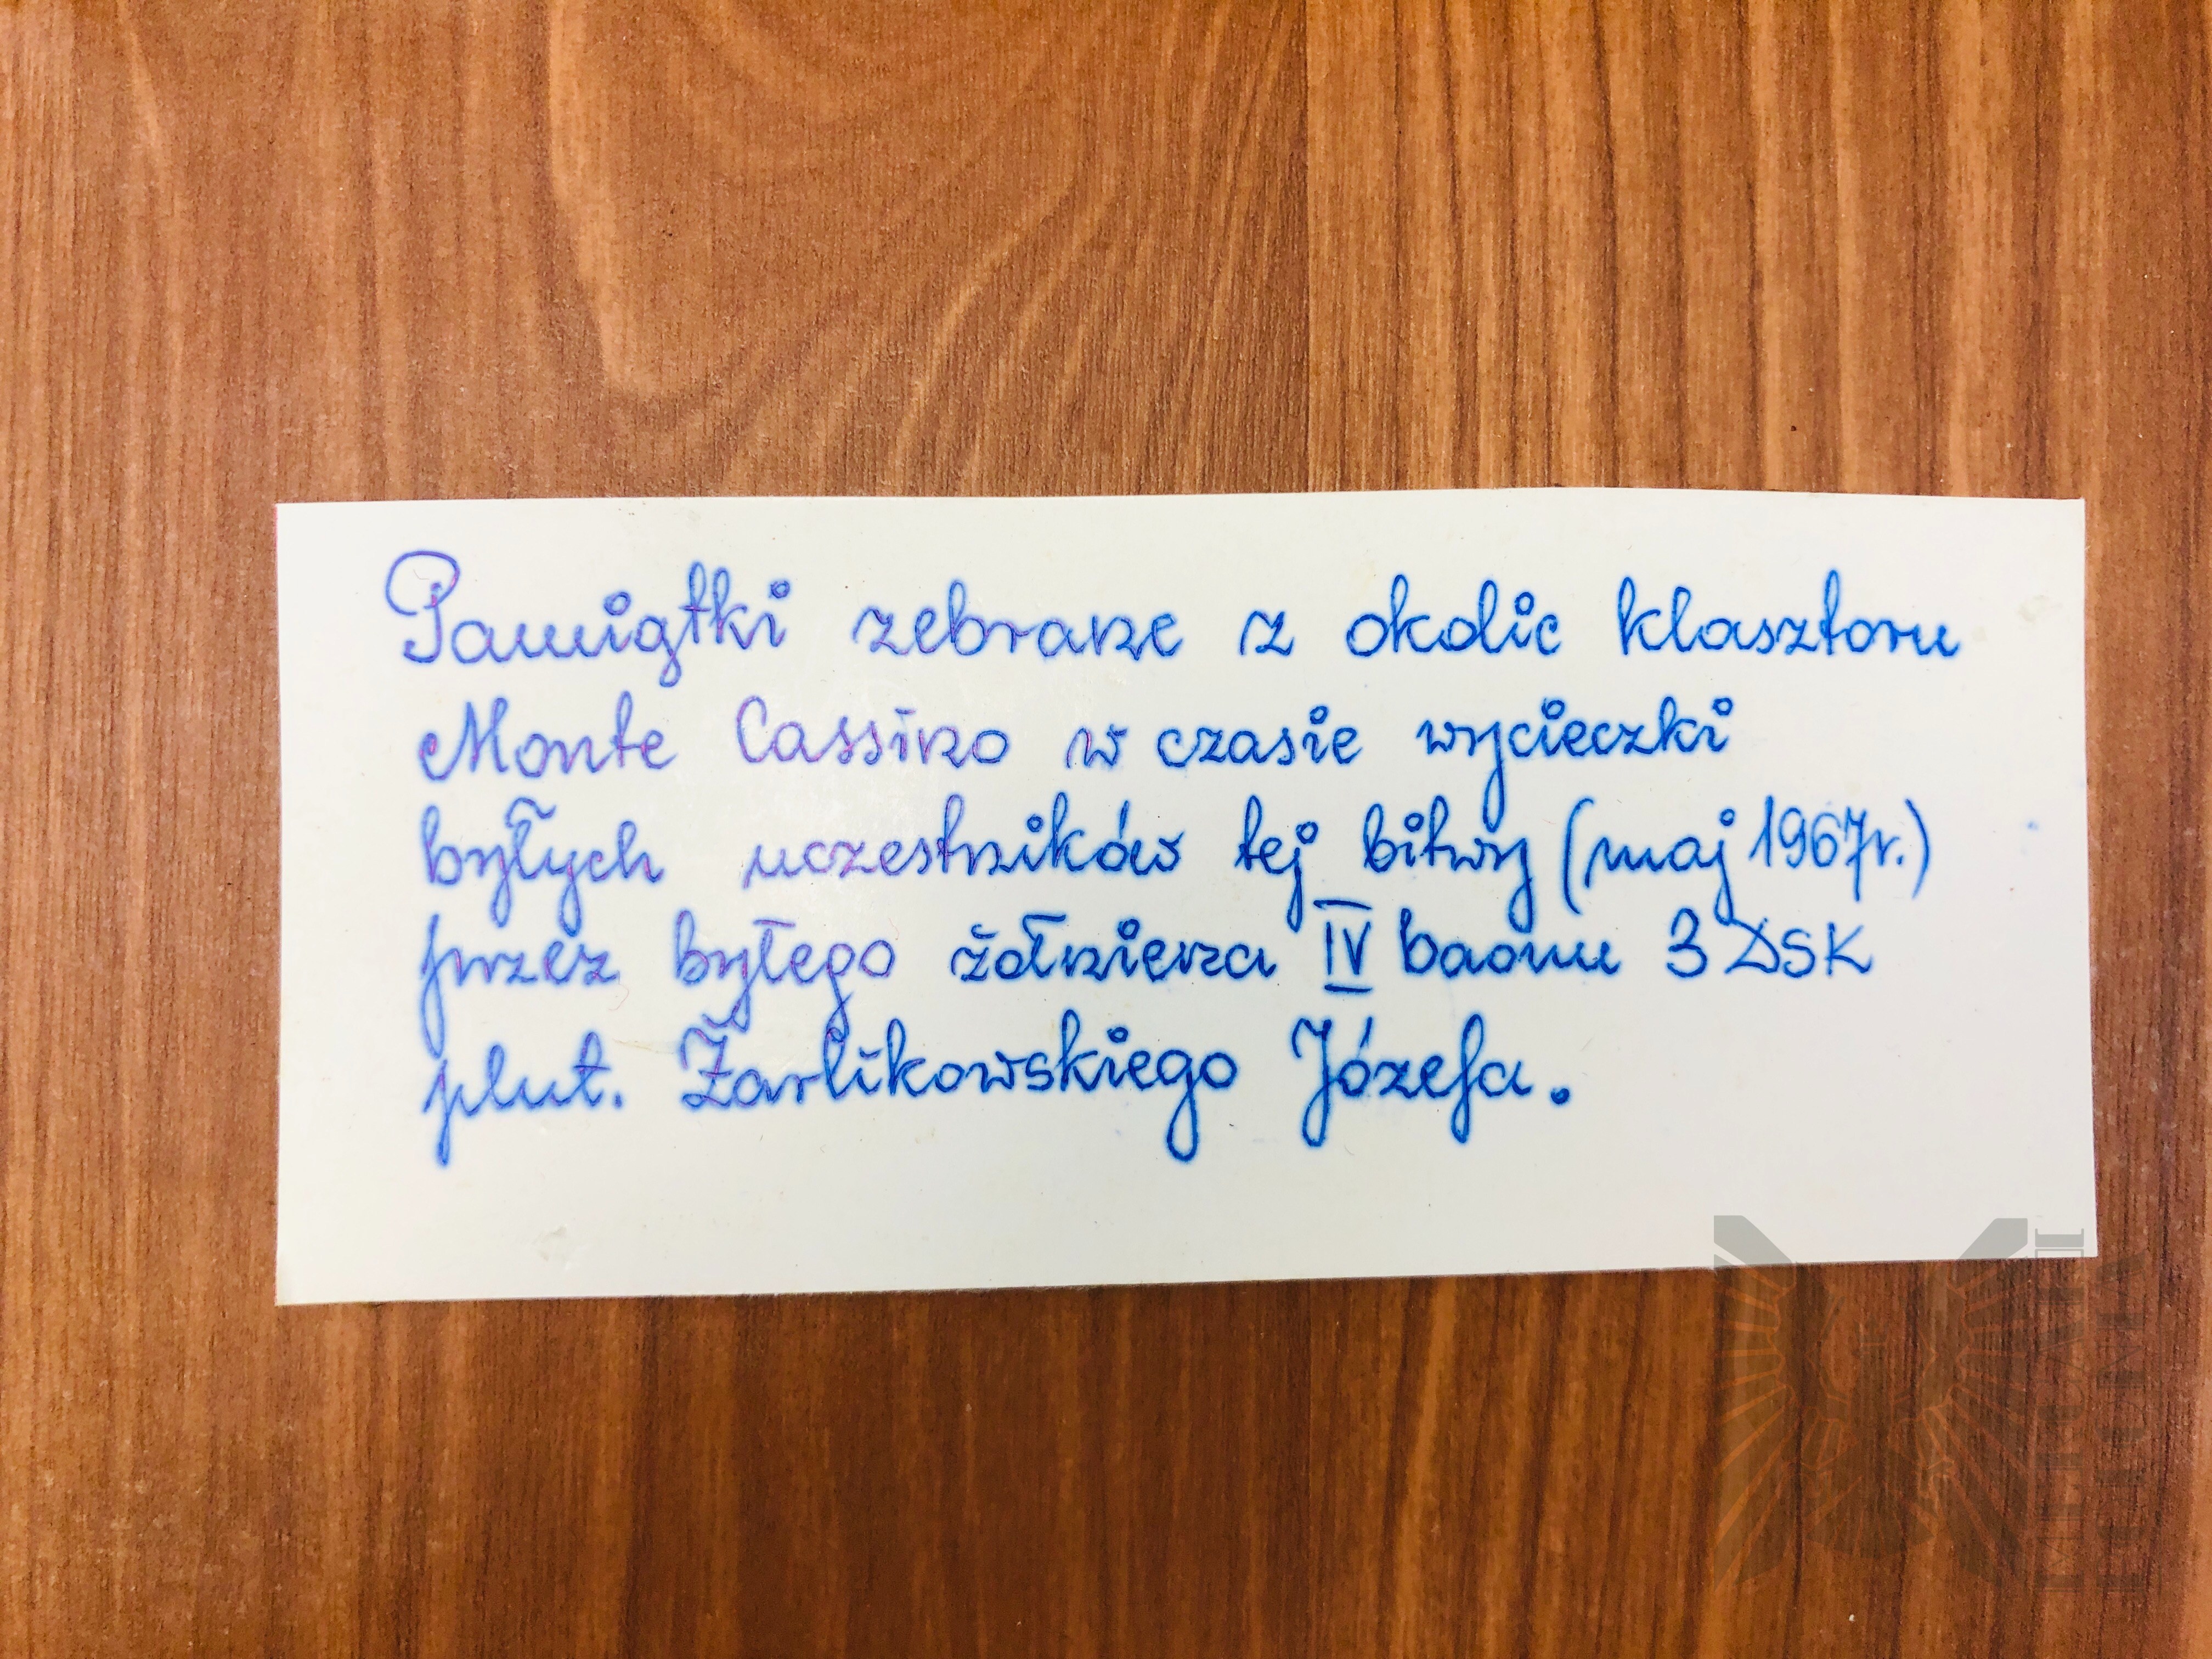 Pamiątki zebrane z okolic klasztoru
Monte Cassino w czasie wycieczki
byłych uczestników tej bitwy (maj 1967r.)
przez byłego żołnierza IV baonu 3 DSK
plut. Żarlikowskiego Józefa.